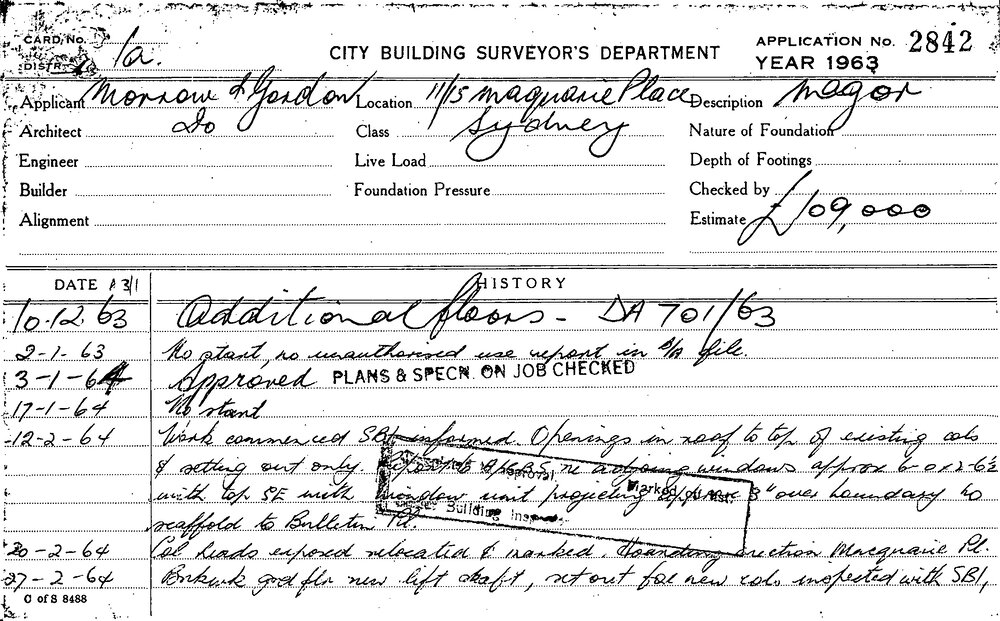 CARD. No. 1a.
DISTR.
CITY BUILDING SURVEYOR'S DEPARTMENT
APPLICATION No. 2842
YEAR 1963
Applicant Morrow & Gordon Location 11/15 Macquarie Place Description Magor
Architect Do Class Sydney Nature of Foundation
Engineer Live Load Depth of Footings
Builder Foundation Pressure Checked by
Alignment Estimate £109,000
DATE HISTORY
10.12.63 Additional floors - DA 701/63
2-1-63 No start, no unauthorised use report in file.
3-1-64 Approved PLANS & SPECN. ON JOB CHECKED
17-1-64 No start
12-2-64 Work commenced SBI informed. Openings in roof to top of existing cols
& setting out only. re adjoing windows approx 6-0 x 2-6½
with top SE with window unit projecting approx 3" over boundary No
scaffold to Bulletin Pl.
Building Inspector
20-2-64 Col heads exposed relocated & marked. Hoarding erection Macquarie Pl.
27-2-64 grd flr new lift shaft, set out for new cols inspected with SBI,
C of S 8488